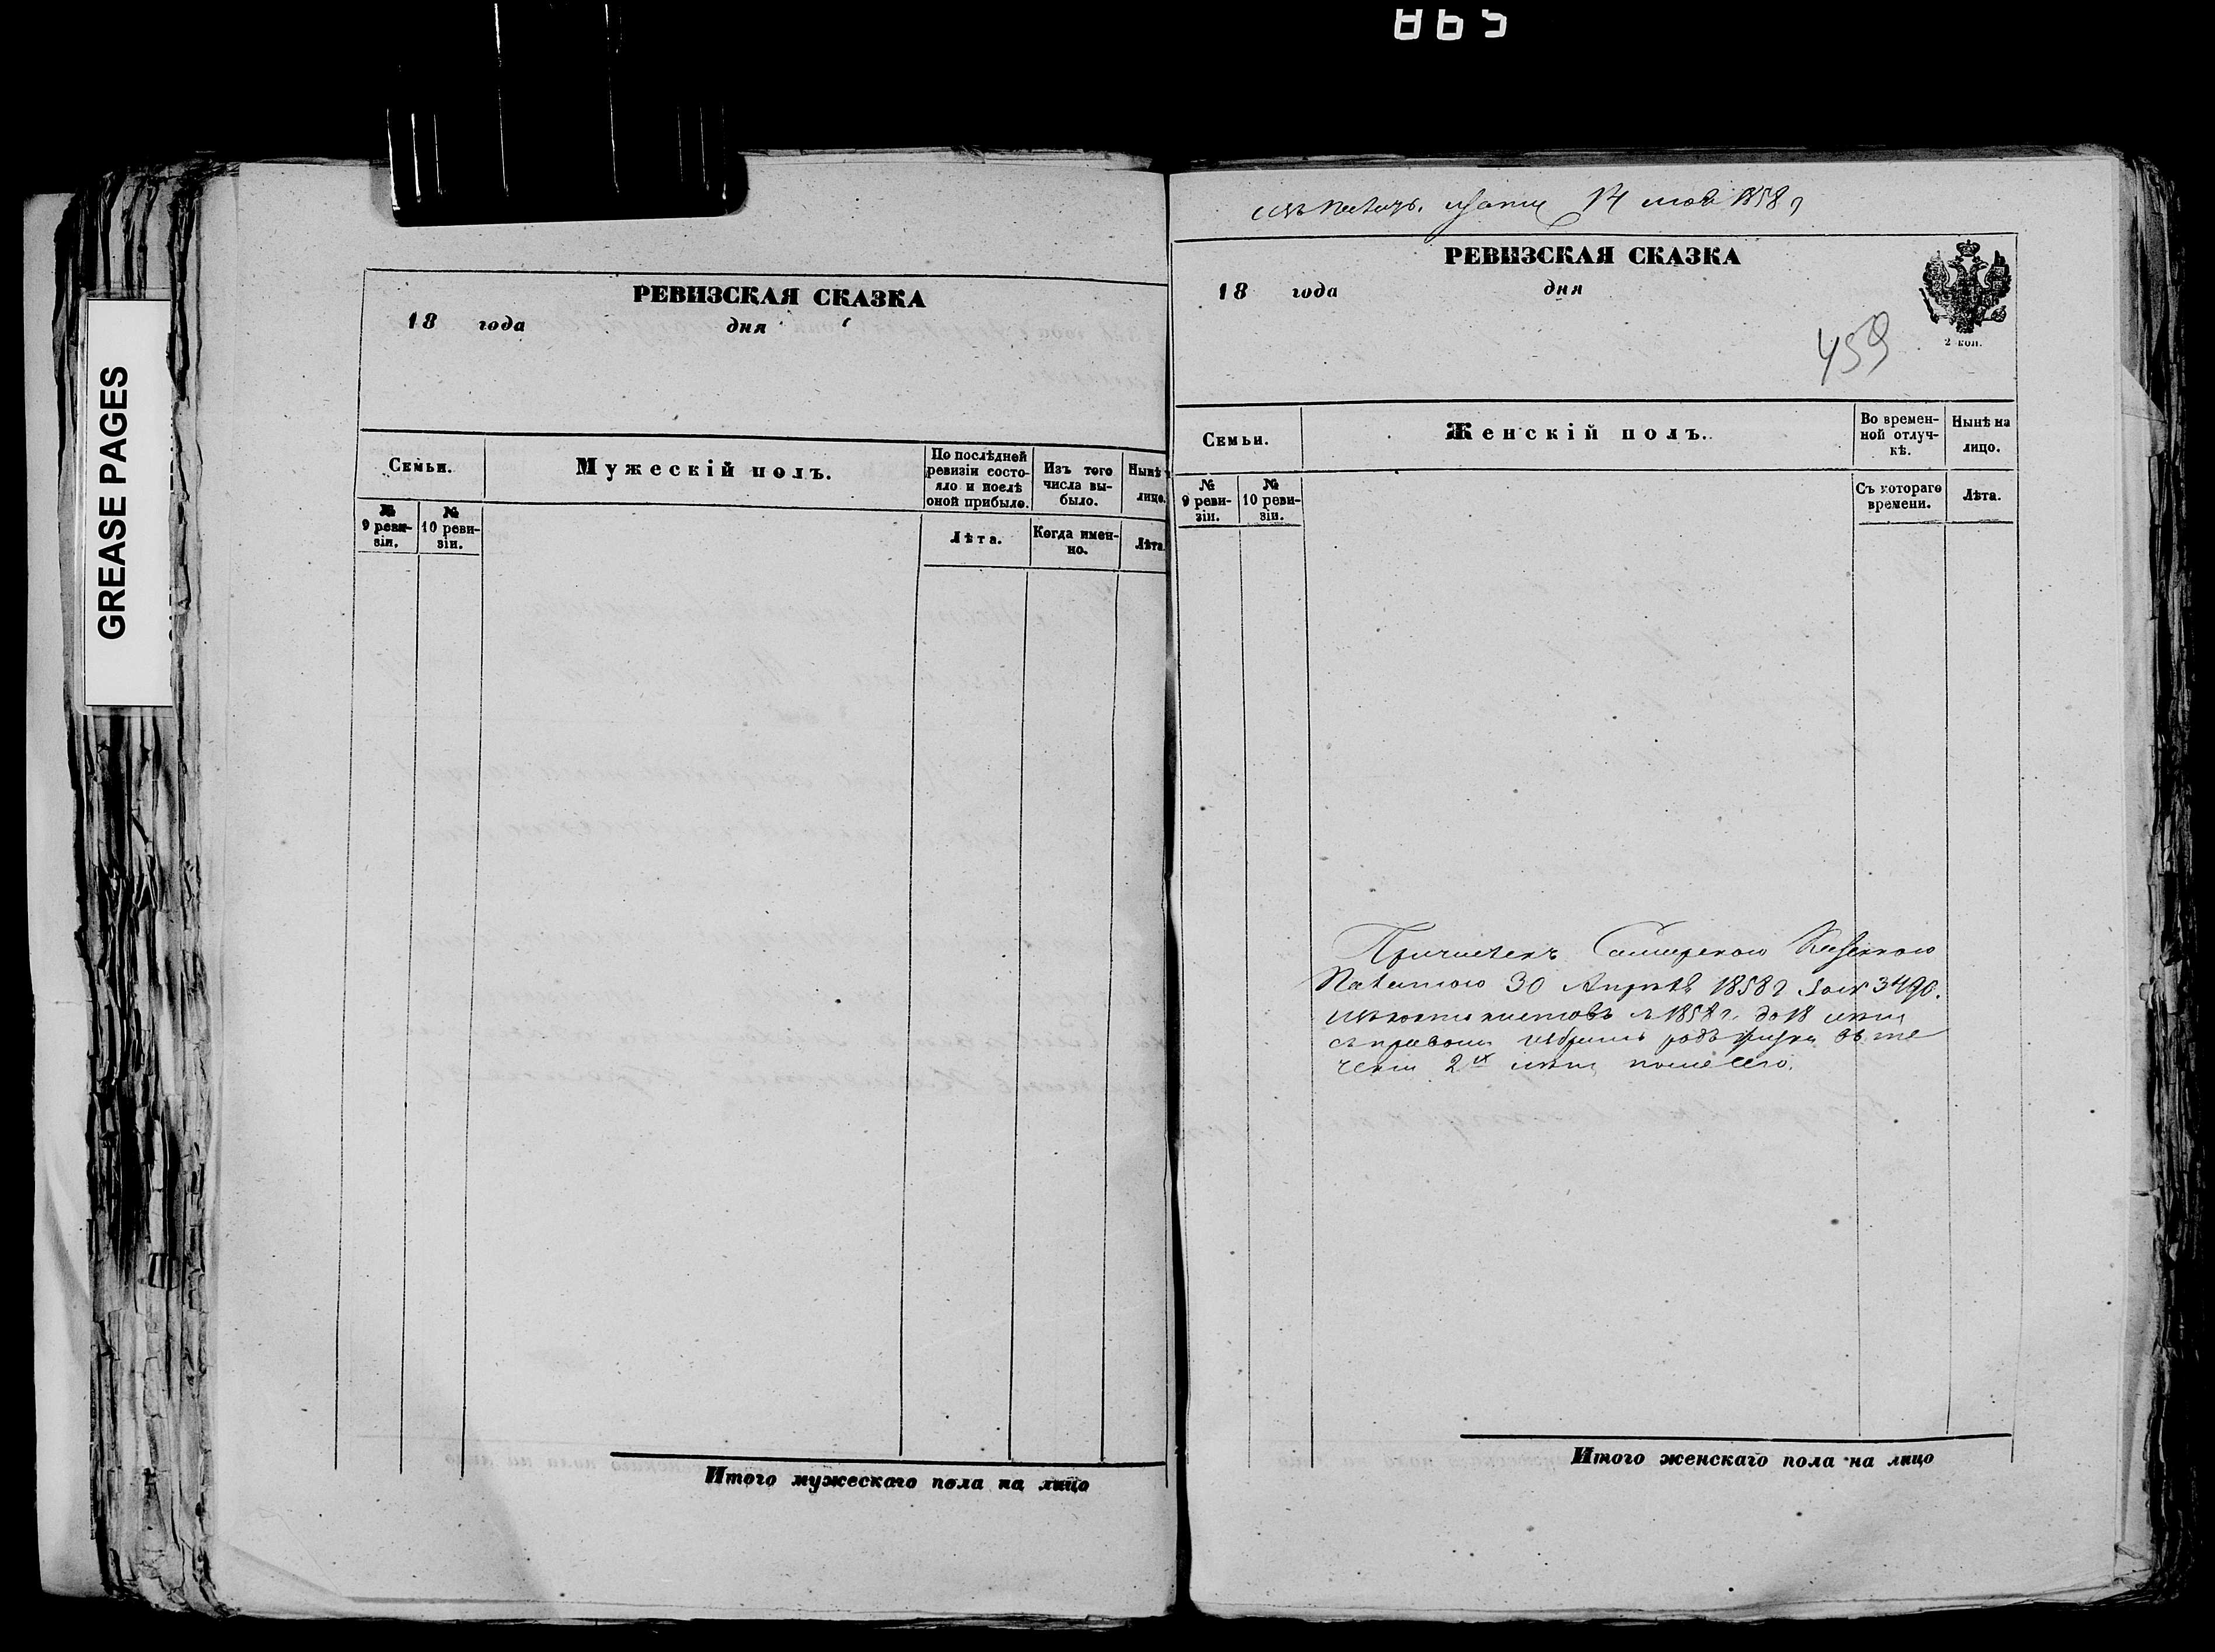 865
GREASE PAGES
РЕВИЗСКАЯ СКАЗКА
18 года дня
Семьи.
Мужескій полъ.
По послѣдней ревизіи состояло и послѣ оной прибыло.
Изъ того числа выбыло.
Нынѣ
лицо.
№ 9 ревизіи.
№ 10 ревизіи.
Лѣта.
Когда именно.
Лѣта
Итого мужескаго пола на лицо
14 1858
РЕВИЗСКАЯ СКАЗКА
18 года дня
459
2 коп.
Семьи.
Женскій полъ.
Во временной отлучкѣ.
Нынѣ на лицо.
№ 9 ревизіи.
№ 10 ревизіи.
Съ котораго времени.
Лѣта.
Причисленъ Казенною
Палатою 30 Апрѣля 1858 г за № 3490.
1858 г. до 18
съ правомъ избрать родъ жизни въ те
ченіи 2х
Итого женскаго пола на лицо